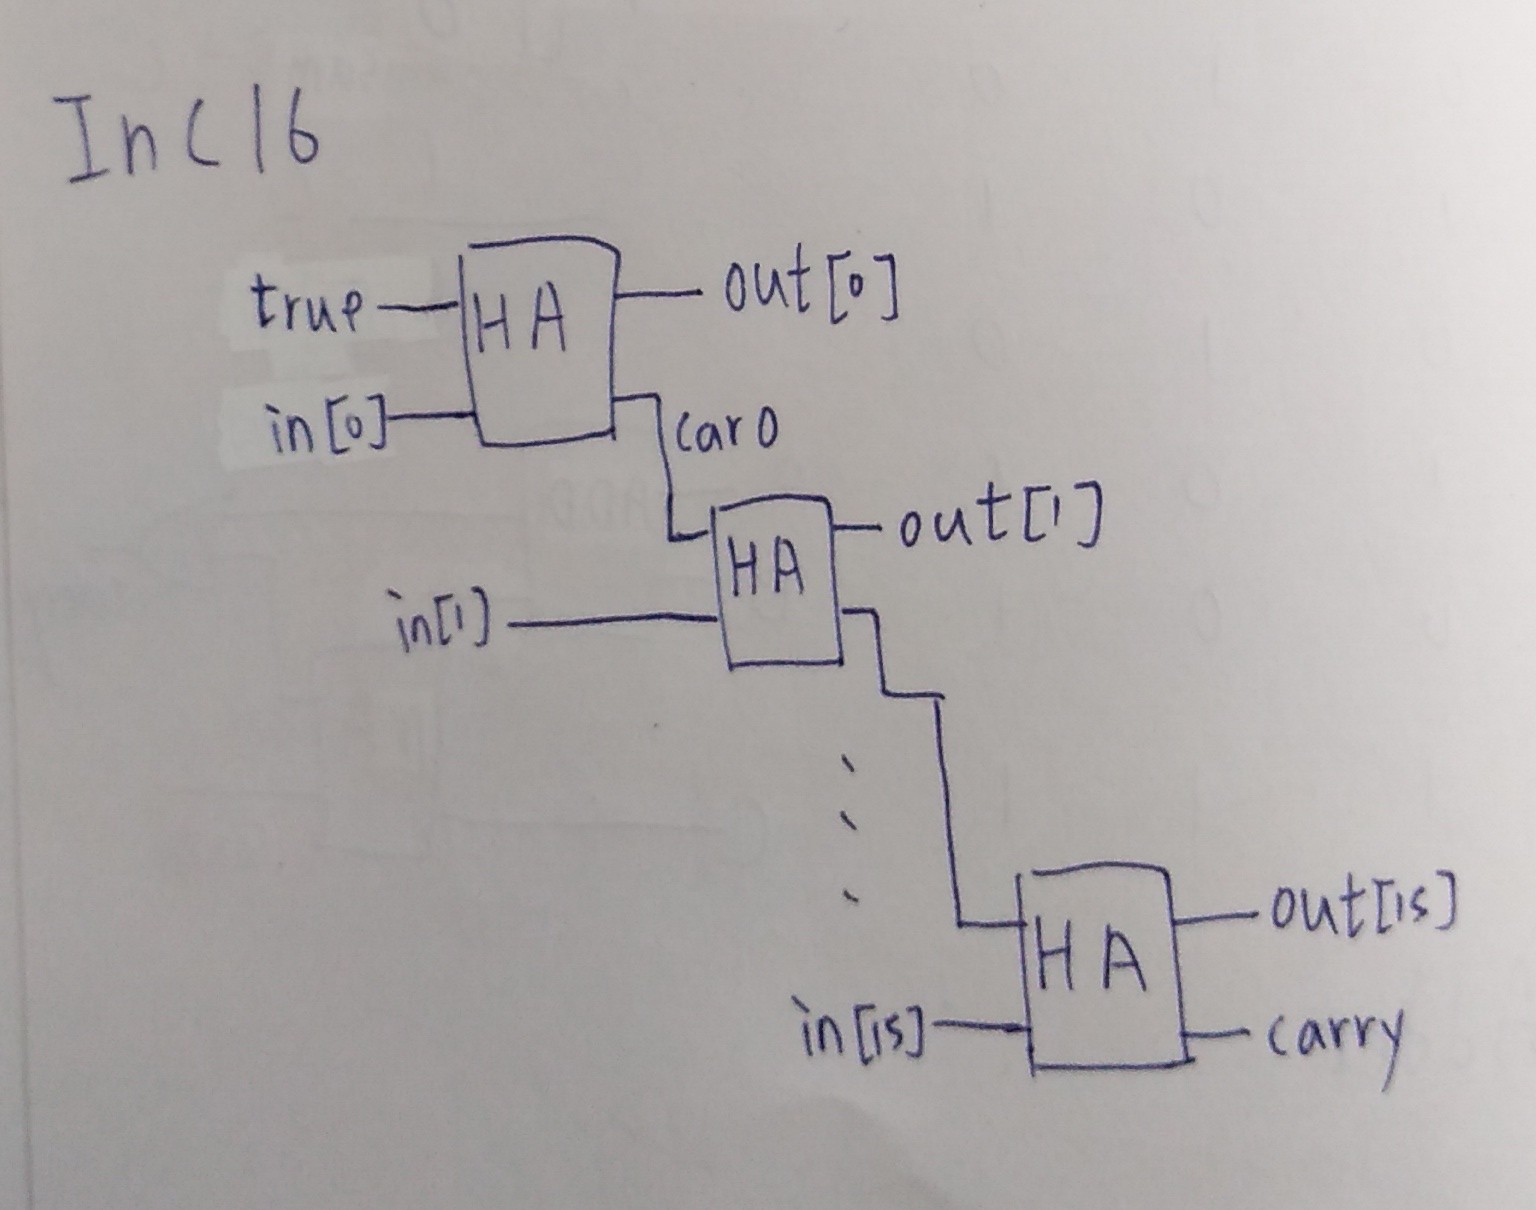 Inc16
true HA out[0]
in[0] car0
HA out[1]
in[1]
HA out[15]
in[15] carry